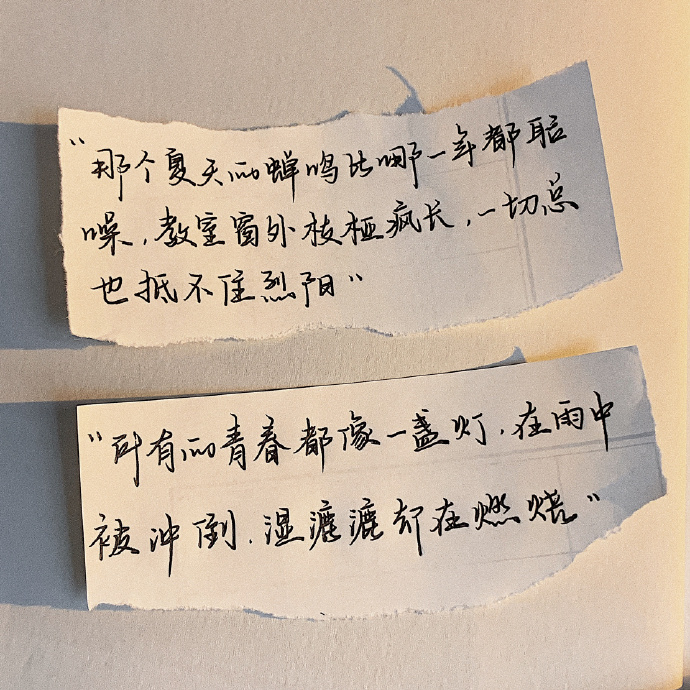 “那个夏天的蝉鸣比哪一年都聒
噪,教室窗外枝桠疯长,一切总
也抵不住烈阳”
“所有的青春都像一盏灯,在雨中
被冲倒,湿漉漉却在燃烧”